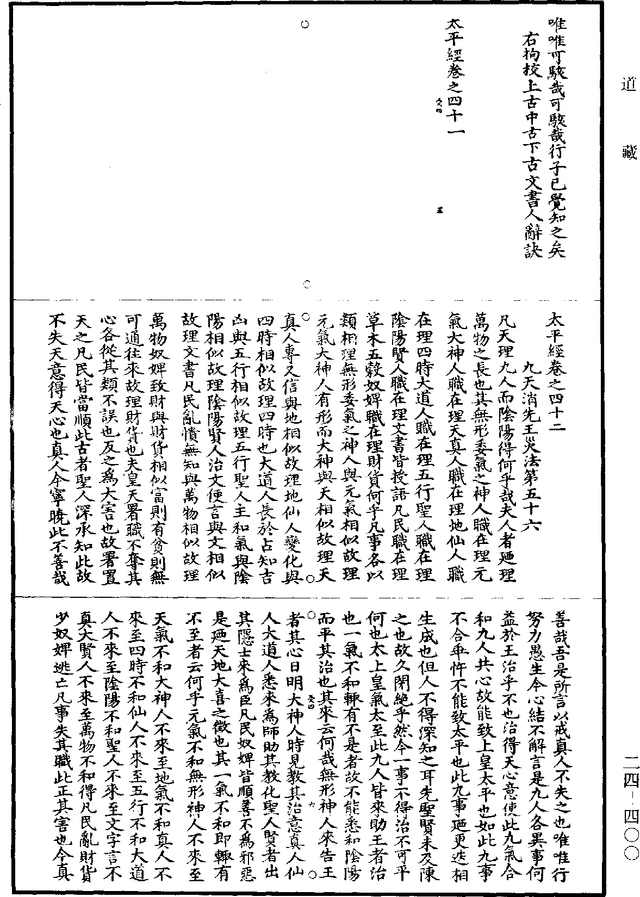 道藏
唯唯可駭哉可駭哉行子已覺知之矣
右拘校上古中古下古文書人辭訣
太平經卷之四十一
太平經卷之四十二
九天消先王災法第五十六
凡天理九人而陰陽得何乎哉夫人者廼理
萬物之長也其無形委氣之神人職在理元
氣大神人職在理天真人職在理地仙人職
在理四時大道人職在理五行聖人職在理
陰陽賢人職在理文書皆授語凡民職在理
草木五穀奴婢職在理財貨何乎凡事各以
類相理無形委氣之神人與元氣相似故理
元氣大神人有形而大神與天相似故理天
真人專又信與地相似故理地仙人變化與
四時相似故理四時也大道人長於占知吉
凶與五行相似故理五行聖人主和氣與陰
陽相似故理陰陽賢人治文便言與文相似
故理文書凡民亂憒無知與萬物相似故理
萬物奴婢致財與財貨相似富則有貧則無
可通往來故理財貨也夫皇天署職不奪其
心各從其類不誤也反之為大害也故署置
天之凡民皆當順此古者聖人深承知此故
不失天意得天心也真人今寧曉此不善哉
善哉吾是所言以戒真人不失之也唯唯行
努力愚生今心結不解言是九人各異事何
益於王治乎不也治得天心意使此九氣合
和九人共心故能致上皇太平也如此九事
不合乖忤不能致太平也此九事廼更迭相
生成也但人不得深知之耳先聖賢未及陳
之也故久閉絕乎然今一事不得治不可平
何也太上皇氣太至此九人皆來助王者治
也一氣不和輒有不是者故不能悉和陰陽
而平其治也其來云何哉無形神人來告王
者其心日明大神人時見教其治意真人仙
人大道人悉來為師助其教化聖人賢者出
其隱士來為臣凡民奴婢皆順善不為邪惡
是廼天地大喜之徵也其一氣不和即輒有
不至者云何乎元氣不和無形神人不來至
天氣不和大神人不來至地氣不和真人不
來至四時不和仙人不來至五行不和大道
人不來至陰陽不和聖人不來至文字言不
真大賢人不來至萬物不和得凡民亂財貨
少奴婢逃亡凡事失其職此正其害也今真
二四-四〇〇